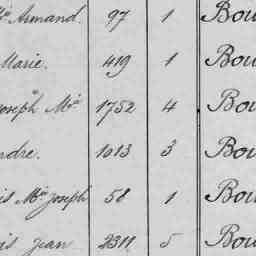 Mie Armand. 97 1 Bou
Marie. 419 1 Bou
Joseph Mie 1752 4 Bou
ndre. 1013 3 Bou
is Mie Joseph 58 1 Bou
is Jean 2311 5 Bou